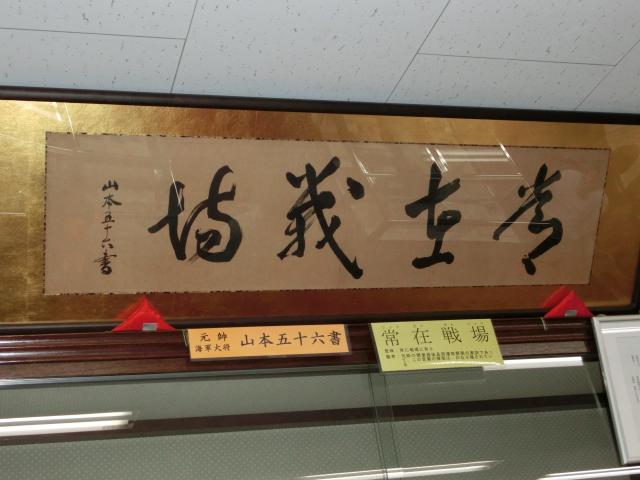 常在戦場
山本五十六書
元帥
海軍大将
山本五十六書
常在戦場